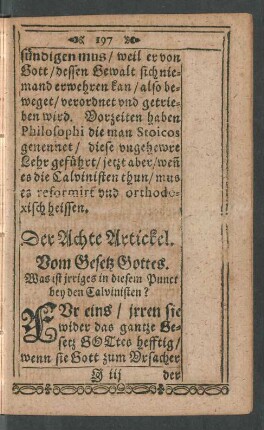 197
sündigen mus / weil er von
Gott / dessen Gewalt sich nie-
mand erwehren kan / also be-
weget / verordnet vnd getrie-
ben wird. Vorzeiten haben
Philosophi die man Stoicos
genennet / diese vngehewre
Lehr geführt / jetzt aber / weñ
es die Calvinisten thun / mus
es reformirt vnd orthodo-
xisch heissen.
Der Achte Artickel.
Vom Gesetz Gottes.
Was ist jrriges in diesem Punct
bey den Calvinisten?
FVr eins / jrren sie
wider das gantze Ge-
setz GOttes hefftig /
wenn sie Gott zum Vrsacher
J iij
der